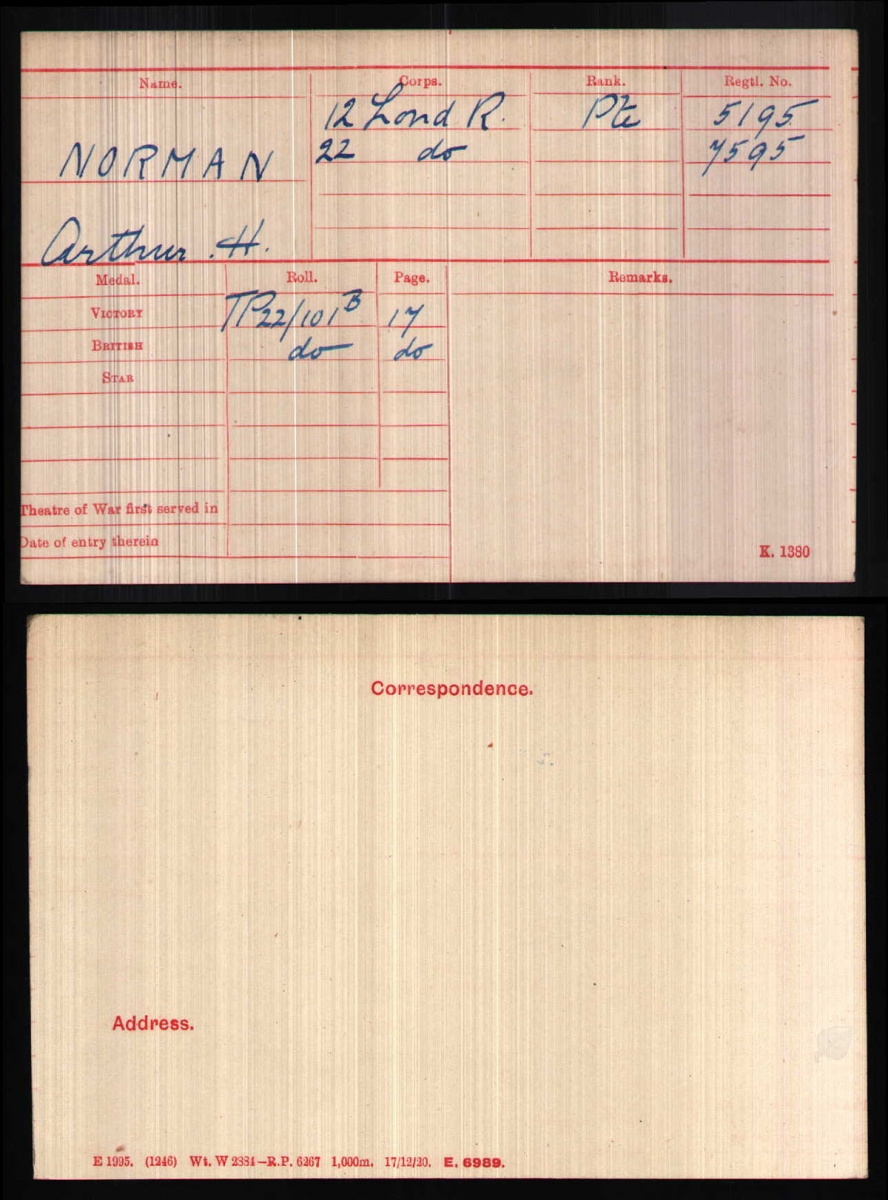 Name. Corps. Rank. Regtl. No.
12 Lond R. Pte 5195
NORMAN 22 do 7595
Arthur .H.
Medal. Roll. Page. Remarks.
VICTORY TP22/101B 17
BRITISH do do
STAR
Theatre of War first served in
Date of entry therein
K. 1380
Correspondence.
Address.
E 1995. (1246) Wt. W 2884—R.P. 6267 1,000m. 17/12/20. E. 6989.